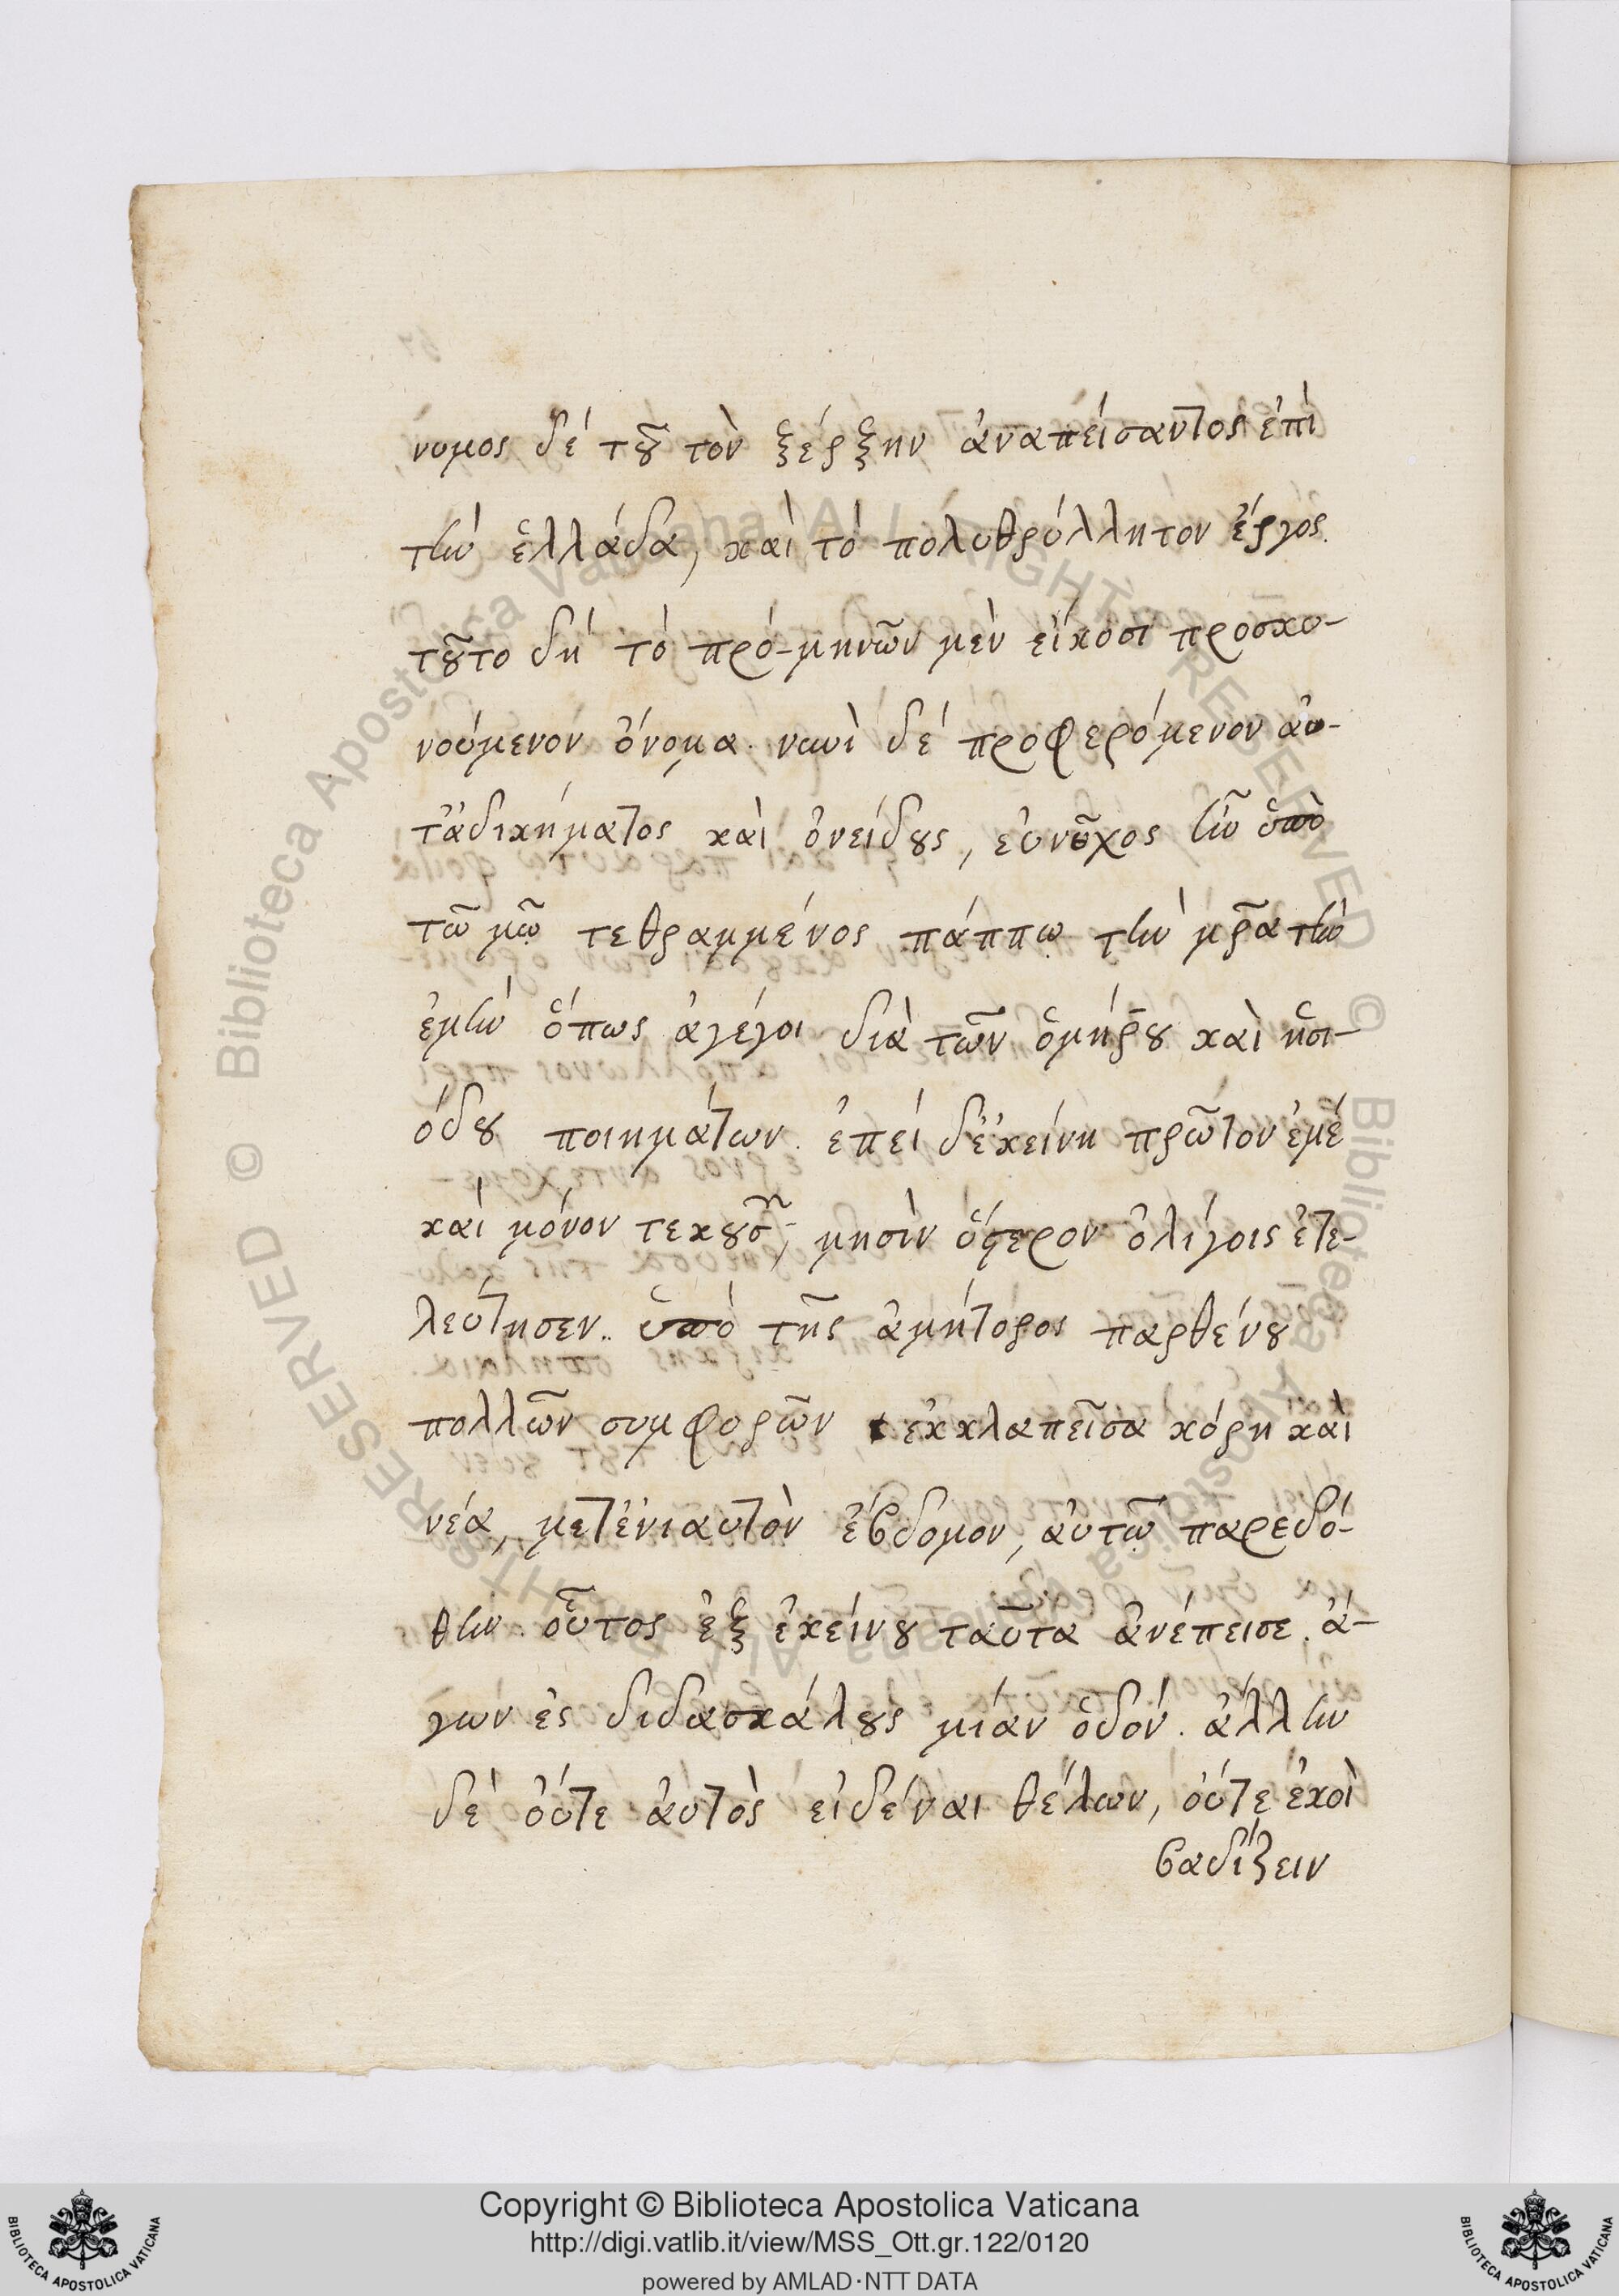 νυμος δέ τȣ͂ τὸν ξέρξην ἀναπείσαντος ἐπὶ
τὴν ἑλλάδα, καὶ τό πολυθρύλλητον ἔργος.
τȣ͂το δή τό πρό-μηνῶν μὲν εἴκοσι προσκυ-
νούμενον ὄνομα. νυνὶ δέ προφερόμενον ἀν-
τἀδικήματος καὶ ὀνείδȣς, εὐνȣ͂χος ἦν ὑπὸ
τῶ μῶ τεθραμμένος πάππω τὴν μρ̃α τὴν
ἐμὴν ὅπως ἀγέγοι διὰ τῶν ὁμήρȣ καὶ ἡσι-
όδȣ ποιημάτων. ἐπεί δ᾽ἐκείνη πρῶτον ἐμέ
καὶ μόνον τεκȣσ͂, μησὶν ὕστερον ὀλίγοις ἐτε-
λεύτησεν.. ὑπό τῆς ἀμήτορος παρθένȣ
πολλῶν συμφορῶν ἐκκλαπεῖσα κόρη καὶ
νέα, μετ᾽ἐνιαυτὸν ἕβδομον, αὐτῶ παρεδό-
θην. οὗτος ἐξ ἐκείνȣ ταῦτα ἀνέπεισε. ἀ-
γων ἐς διδασκάλȣς μίαν ὁδόν. ἀλλην
δὲ οὔτε ἀυτὸς εἰδέναι θέλων, οὔτε ἐκοὶ
βαδίζειν
Copyright © Biblioteca Apostolica Vaticana
http://digi.vatlib.it/view/MSS_Ott.gr.122/0120
powered by AMLAD·NTT DATA